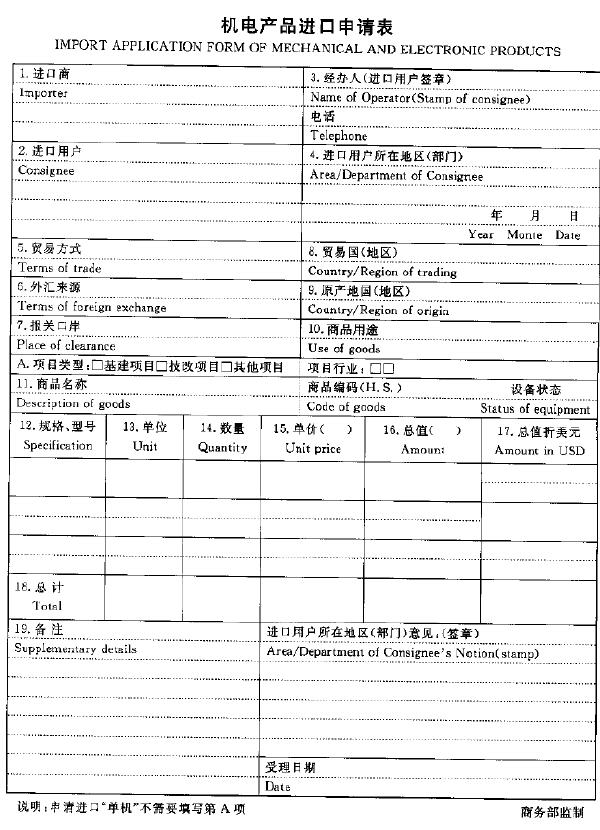 机电产品进口申请表
IMPORT APPLICATION FORM OF MECHANICAL AND ELECTRONIC PRODUCTS
1.进口商
Importer
3.经办人(进口用户签章)
Name of Operator(Stamp of consignee)
电话
Telephone
2.进口用户
Consignee
4.进口用户所在地区(部门)
Area/Department of Consignee
年 月 日
Year Monte Date
5.贸易方式
Terms of trade
8.贸易国(地区)
Country/Region of trading
6.外汇来源
Terms of foreign exchange
9.原产地国(地区)
Country/Region of origin
7.报关口岸
Place of clearance
10.商品用途
Use of goods
A.项目类型:□基建项目□技改项目□其他项目
项目行业:□□
11.商品名称
Description of goods
商品编码(H.S.)
Code of goods
设备状态
Status of equipment
12.规格、型号
Specification
13.单位
Unit
14.数量
Quantity
15.单价( )
Unit price
16.总值( )
Amount
17.总值折美元
Amount in USD
18.总计
Total
19.备注
Supplementary details
进口用户所在地区(部门)意见:(签章)
Area/Department of Consignee's Notion(stamp)
受理日期
Date
说明:申请进口“单机”不需要填写第 A 项
商务部监制